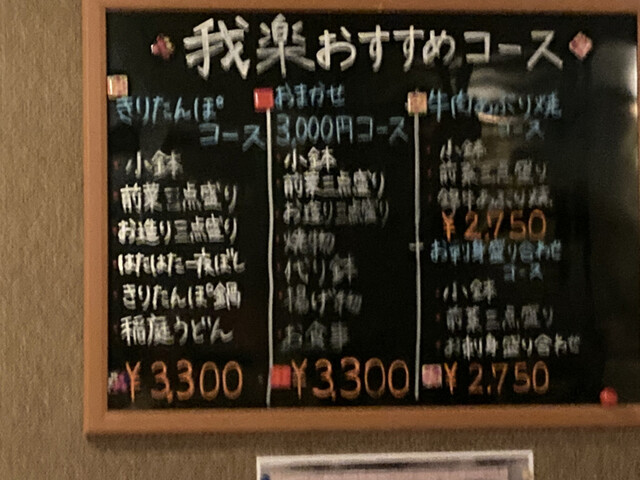 我楽おすすめコース
きりたんぽ
コース
小鉢
前菜三点盛り
お造り三点盛り
はたはた一夜ぼし
きりたんぽ鍋
稲庭うどん
¥3,300
おまかせ
3,000円コース
小鉢
前菜三点盛り
お造り三点盛り
焼物
代り鉢
揚げ物
お食事
¥3,300
牛肉あぶり焼
コース
小鉢
前菜三点盛り
牛あぶり焼
¥2,750
お刺身盛り合わせ
コース
小鉢
前菜三点盛り
お刺身盛り合わせ
¥2,750